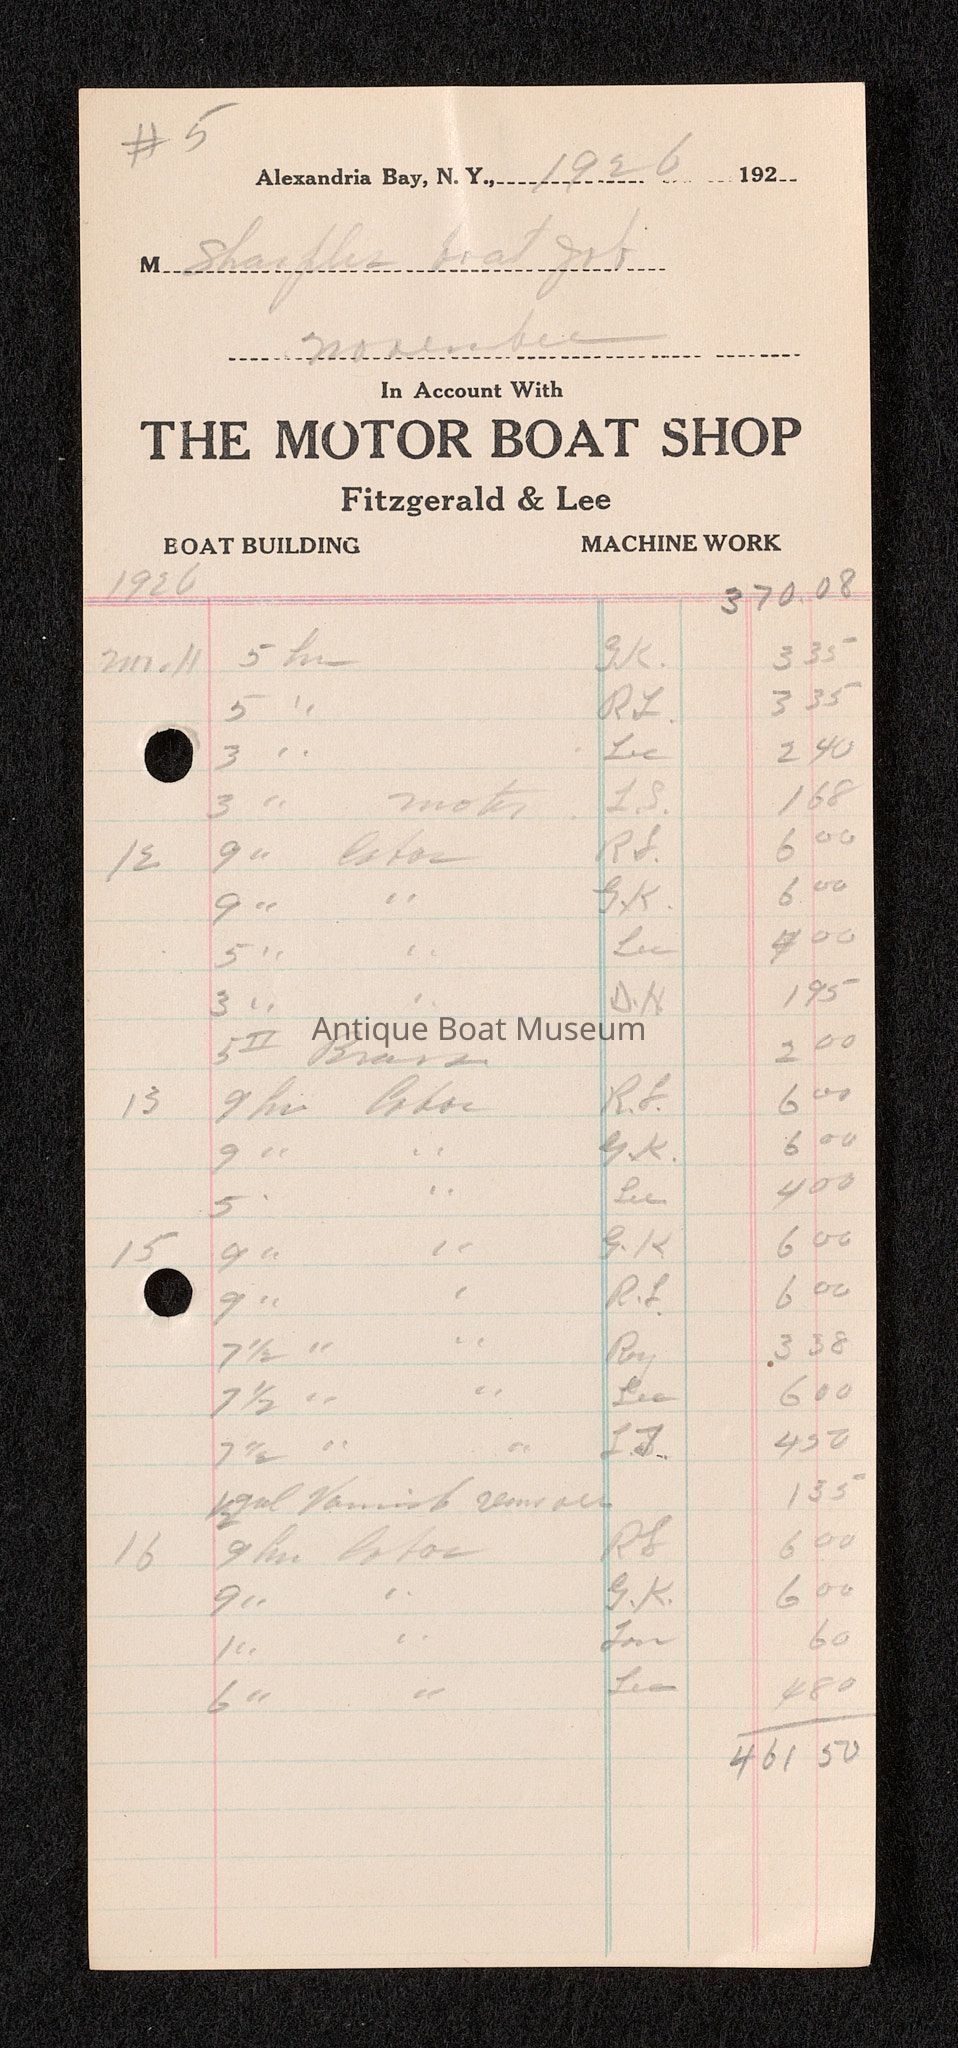 # 5
Alexandria Bay, N. Y., 1926 192
M Sharples boat job
November
In Account With
THE MOTOR BOAT SHOP
Fitzgerald & Lee
BOAT BUILDING MACHINE WORK
1926 370.08
Nov. 11 5 hr G.K. 3 35
5 " R.L. 3 35
3 " Lee 2 40
3 " motor L.S. 1 68
12 9 " labor R.L. 6 00
9 " " G.K. 6 00
5 " " Lee 4 00
3 " " D.H 1 95
5 Brass 2 00
Antique Boat Museum
13 9 hr labor R.L. 6 00
9 " " G.K. 6 00
5 " " Lee 4 00
15 9 " " G.K 6 00
9 " " R.L. 6 00
7 1/2 " " Roy 3 38
7 1/2 " " Lee 6 00
7 1/2 " " 4 50
1/2 gal Varnish remover 1 35
16 9 hr labor RL 6 00
9 " " G.K. 6 00
1 " " 60
6 " " Lee 4 80
461 50